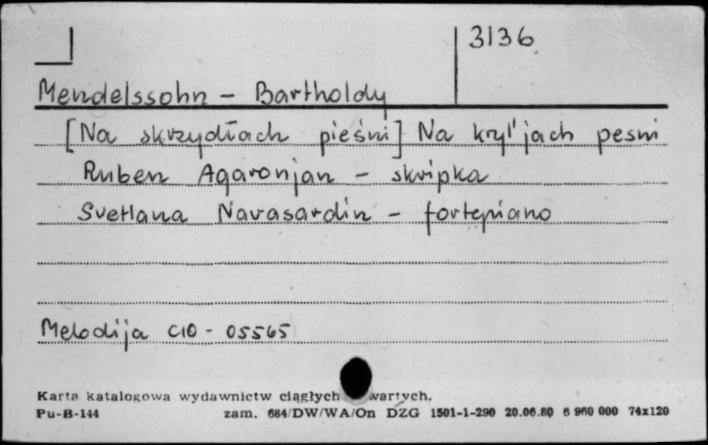 3136
Mendelssohn - Bartholdy
[Na skrzydłach pieśni] Na kryl'jach pesni
Ruben Agaronjan - skripka
Svetlana Navasardin - fortepiano
Melodija C10 - 05565
Karta katalogowa wydawnictw ciągłych wartych.
Pu-B-144 zam. 684/DW/WA/On DZG 1501-1-290 20.06.80 6 960 000 74x120